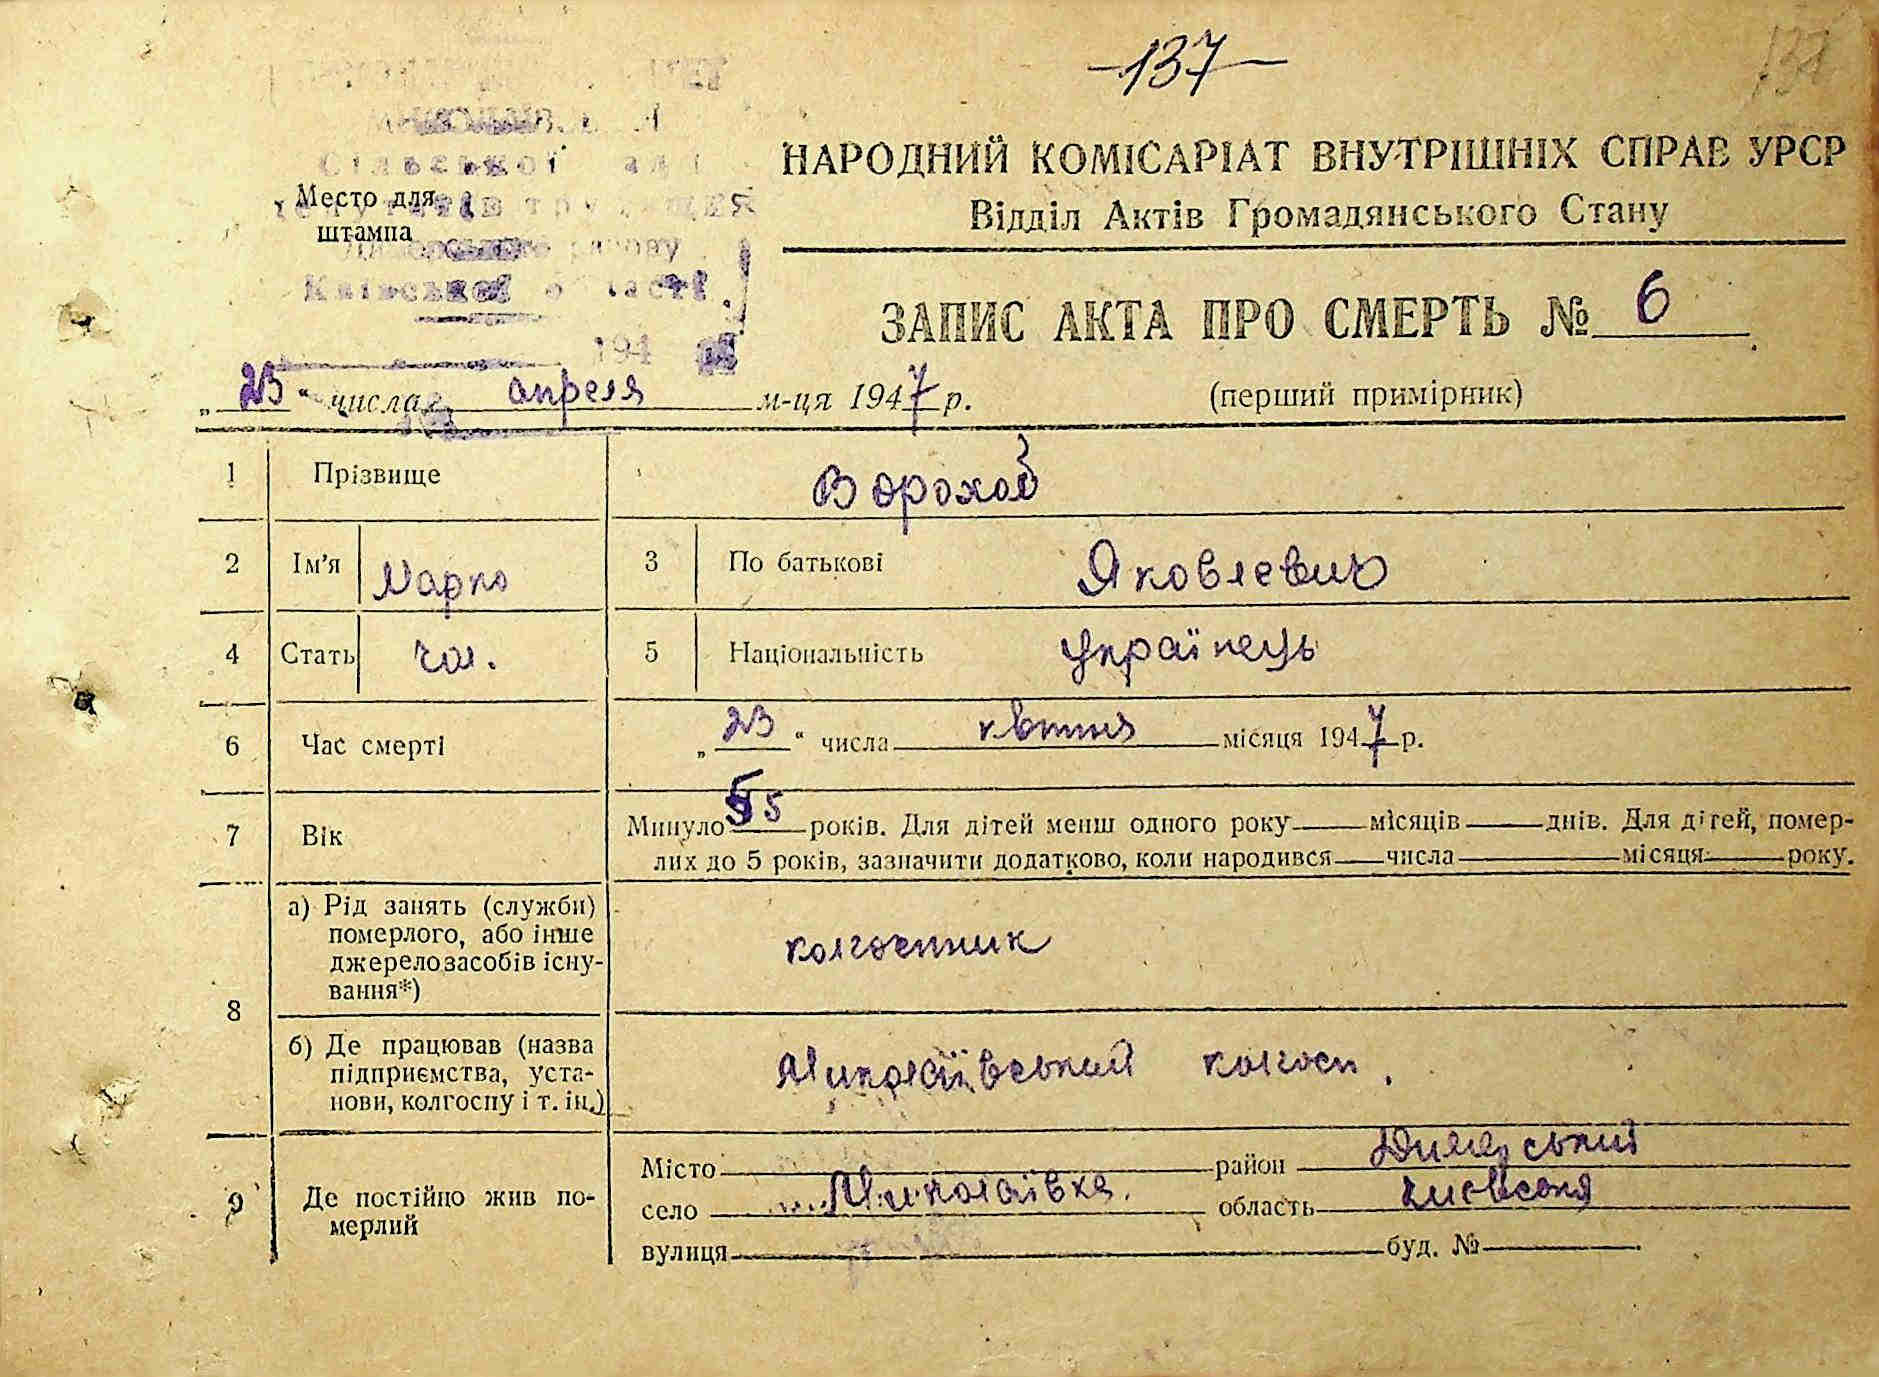 137
137
НАРОДНИЙ КОМІСАРІАТ ВНУТРІШНІХ СПРАВ УРСР
Відділ Актів Громадянського Стану
Сільської
Место для
штампа
району
Київської області
194
ЗАПИС АКТА ПРО СМЕРТЬ № 6
„23“ числа апреля м-ця 1947 р. (перший примірник)
1 Прізвище Ворохоб
2 Ім'я Марко 3 По батькові Яковлевич
4 Стать чол. 5 Національність українець
6 Час смерті „23“ числа квітня місяця 1947 р.
7 Вік Минуло 55 років. Для дітей менш одного року місяців днів. Для дітей, помер-
лих до 5 років, зазначити додатково, коли народився числа місяця року.
8 а) Рід занять (служби)
померлого, або інше
джерело засобів існу-
вання*) колгоспник
б) Де працював (назва
підприємства, уста-
нови, колгоспу і т. ін.) Миколаївський колгосп.
9 Де постійно жив по-
мерлий
Місто район Димерський
село Миколаївка. область Киевская
вулиця буд. №